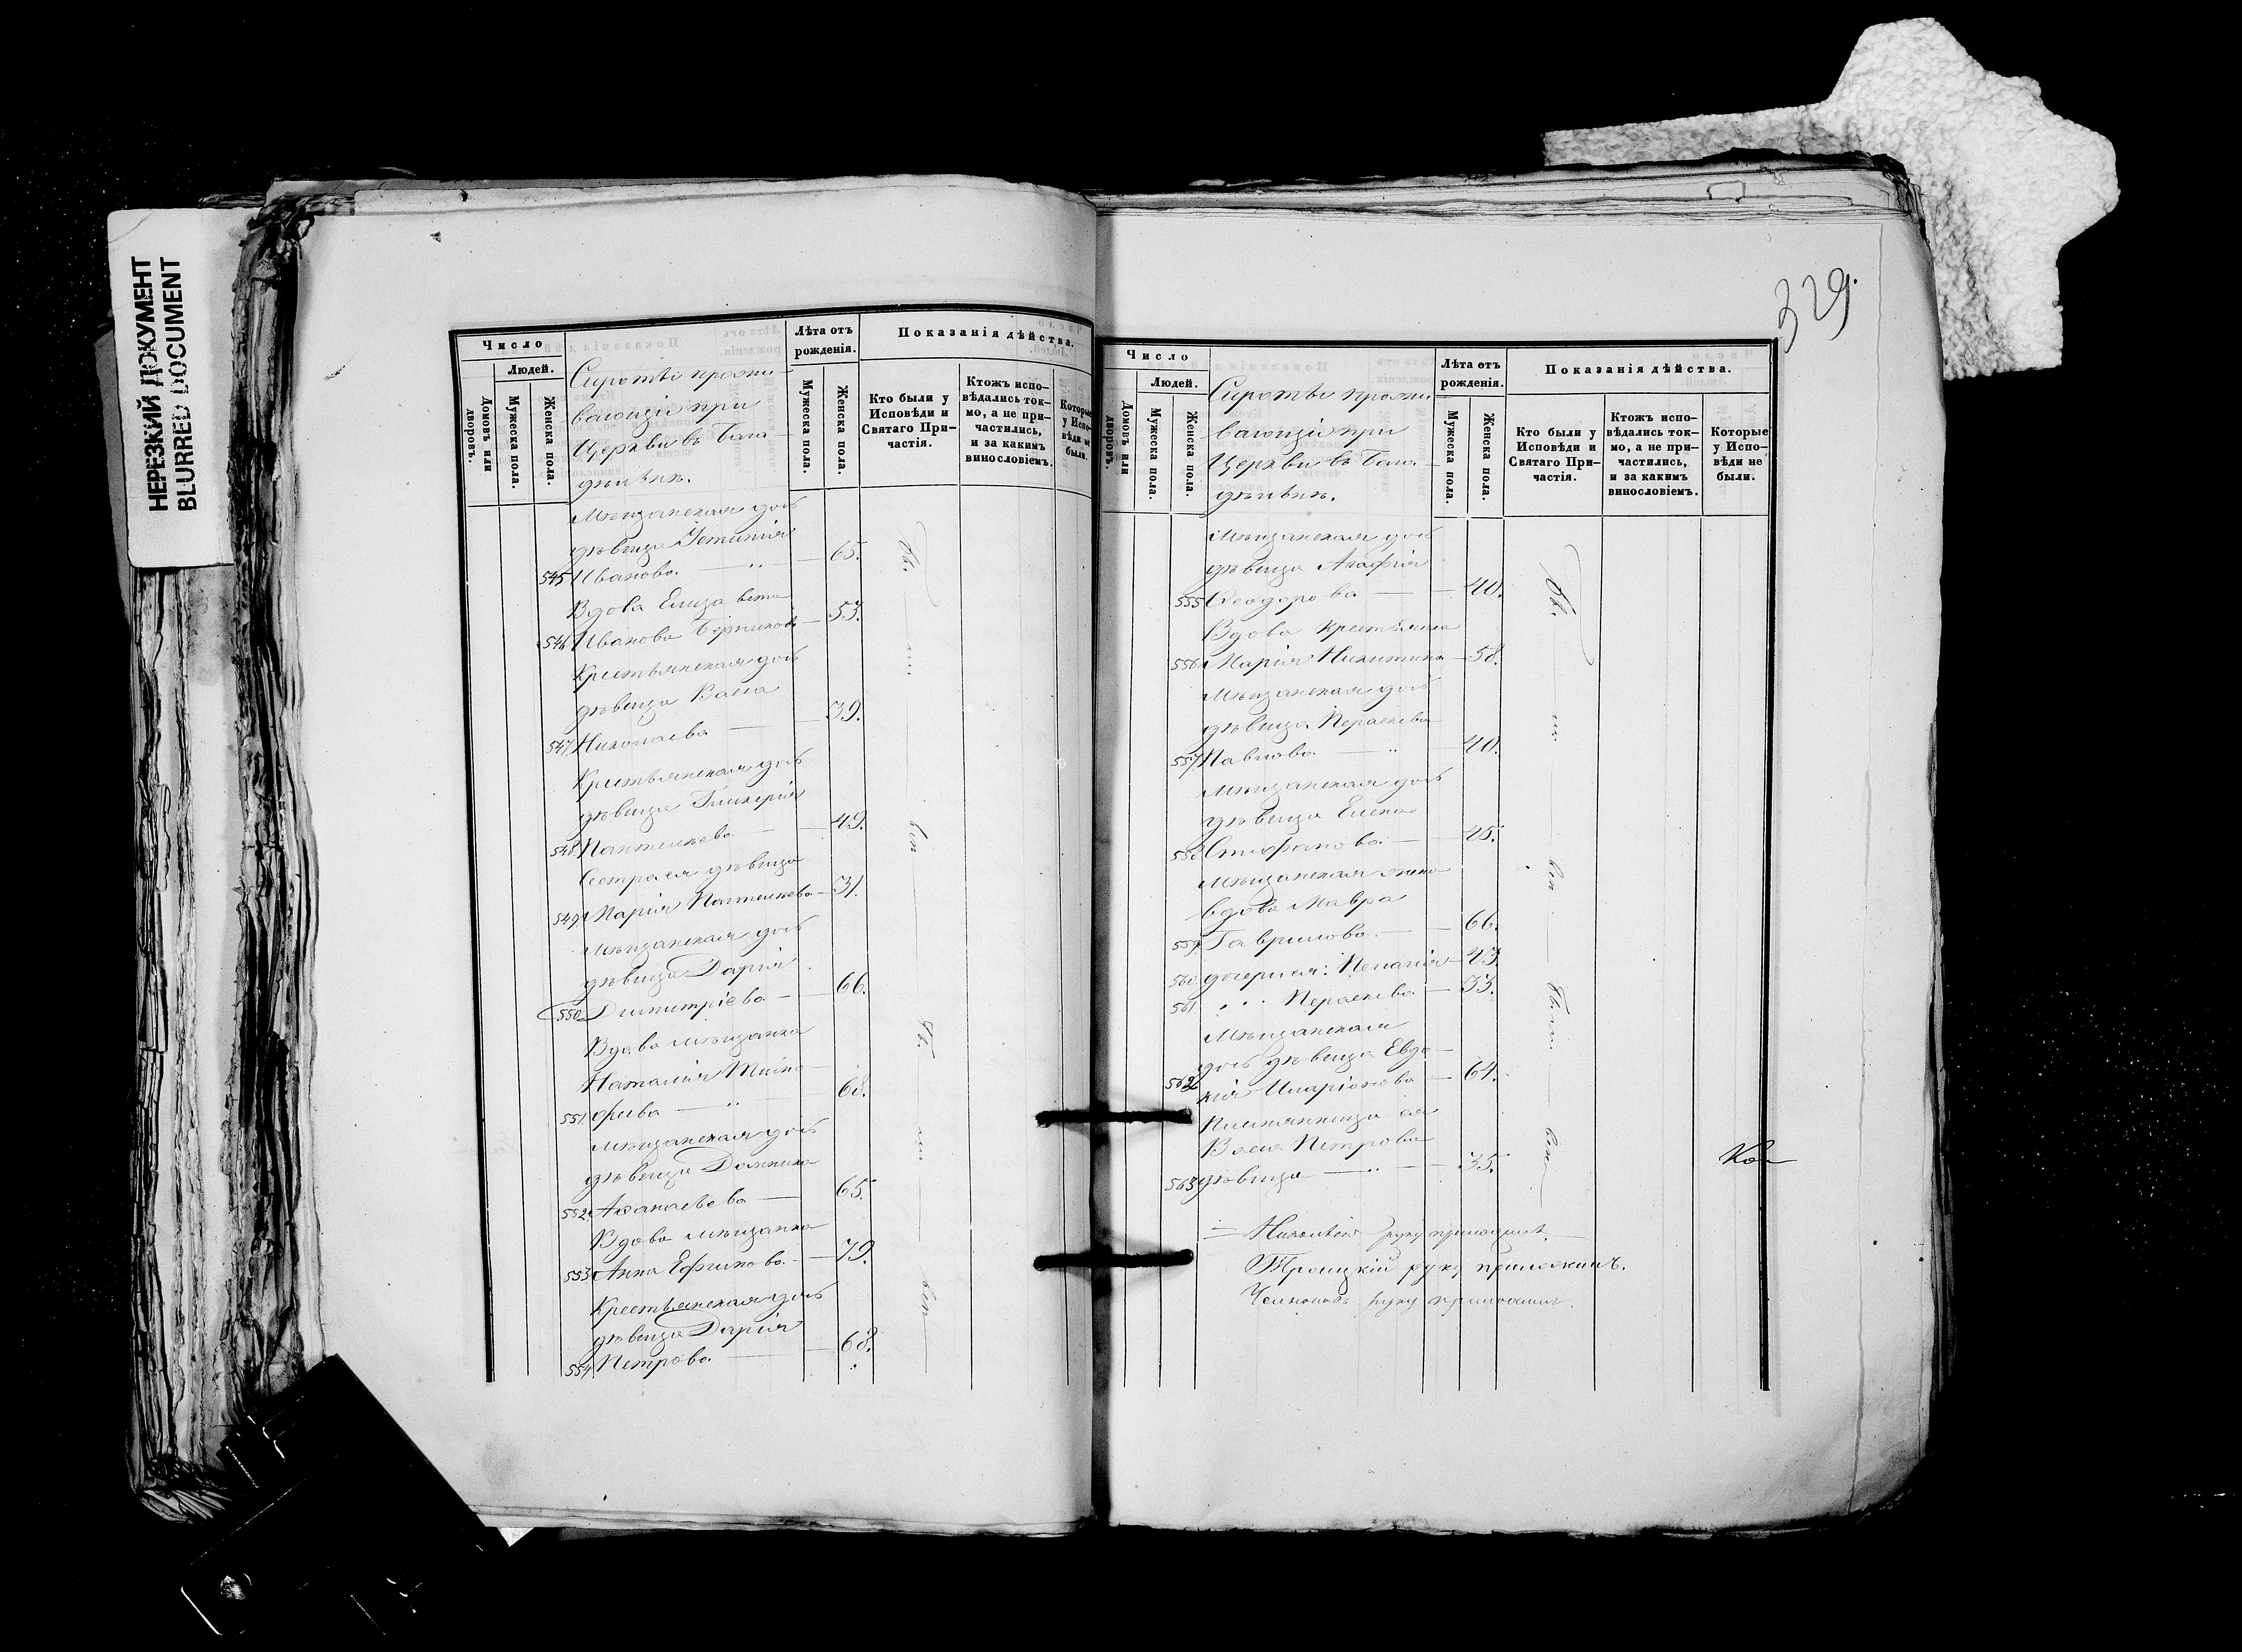 НЕРЕЗКИЙ ДОКУМЕНТ
BLURRED DOCUMENT
Число
Людей.
Домовъ или дворовъ.
Мужеска пола.
Женска пола.
Сироты прожи-
вающіе при
Церкви въ Бога-
дѣльнѣ.
Лѣта отъ рожденія.
Мужеска пола.
Женска пола.
Показанія дѣйства.
Кто были у Исповѣди и Святаго Причастія.
Ктожъ исповѣдались токмо, а не причастились, и за какимъ винословіемъ.
Которые у Исповѣди не были.
Мѣщанская дочь
дѣвица Устинія
545 Иванова. — 65.
Вдова Елизавета
546 Иванова — 53.
Крестьянская дочь
дѣвица Васса
547 Николаева — 39.
Крестьянская дочь
дѣвица Гликерія
548 Пантелеева — 49.
Сестра ея дѣвица
549 Марія Пантелеева — 31.
Мѣщанская дочь
дѣвица Дарія
550 Димитріева — 66.
Вдова мѣщанка
Наталія Тимо-
551 феева — 68.
Мѣщанская дочь
дѣвица Домника
552 Аѳанасьева — 65.
Вдова мѣщанка
553 Анна Ефимова — 79.
Крестьянская дочь
дѣвица Дарія
554 Петрова. — 68.
329.
Число
Людей.
Домовъ или дворовъ.
Мужеска пола.
Женска пола.
Сироты прожи-
вающіе при
Церкви въ Бога-
дѣльнѣ.
Лѣта отъ рожденія.
Мужеска пола.
Женска пола.
Показанія дѣйства.
Кто были у Исповѣди и Святаго Причастія.
Ктожъ исповѣдались токмо, а не причастились, и за какимъ винословіемъ.
Которые у Исповѣди не были.
Мѣщанская дочь
дѣвица Агафія
555 Ѳеодорова — 40.
Вдова Крестьянка
556 Марія Никитина — 58.
Мѣщанская дочь
дѣвица Параскева
557 Павлова — 40.
Мѣщанская дочь
дѣвица Елена
558 Стефанова. — 45.
Мѣщанская жена
вдова Мавра
559 Гаврилова. — 66.
560 дочери ея: Пелагія — 43.
561 Параскева — 33.
Мѣщанская
дочь дѣвица Евдо-
562 кія Иларіонова — 64.
Племянница ея
Васса Петрова
563 дѣвица — 35.
руку приложилъ.
Троицкій руку приложилъ.
руку приложилъ.